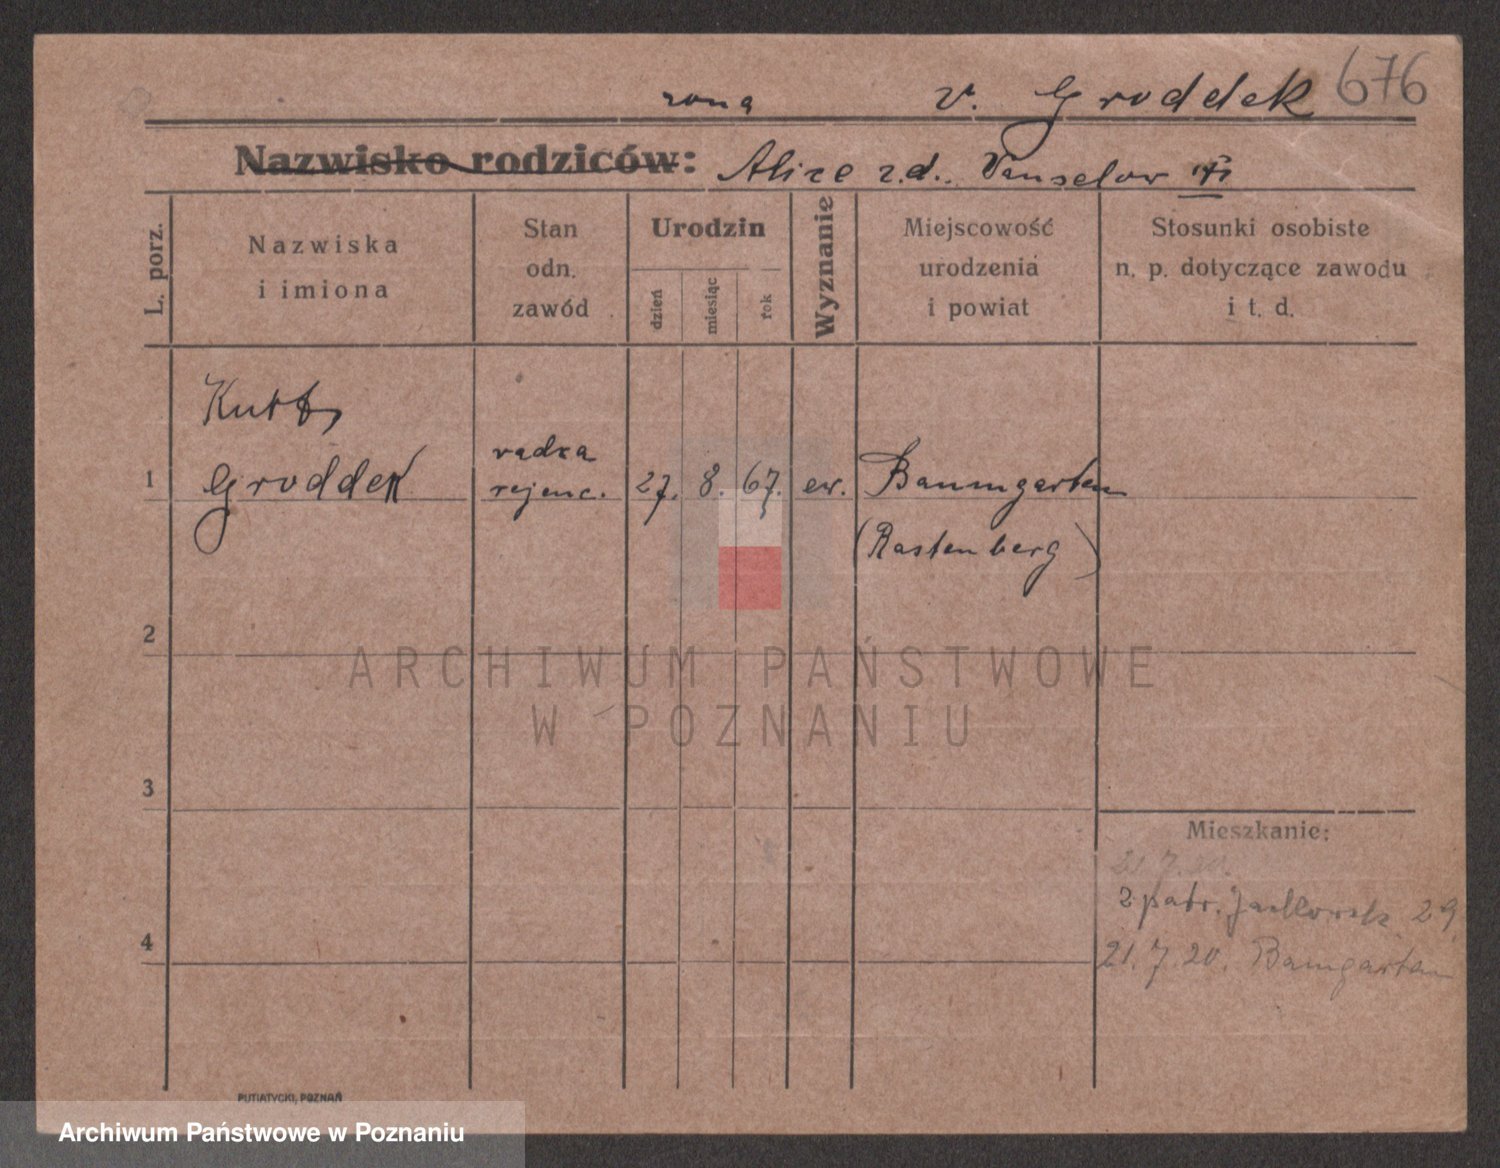 676
żona v. Groddek
Nazwisko rodziców: Alice z.d. Vanselow
L. porz.
Nazwiska
i imiona
Stan
odn.
zawód
Urodzin
dzień
miesiąc
rok
Wyznanie
Miejscowość
urodzenia
i powiat
Stosunki osobiste
n. p. dotyczące zawodu
i t. d.
Kurt
1 Groddek radca rejenc. 27. 8. 67. ew. Baumgarten
(Rastenberg)
2
3
4
Mieszkanie:
21.7.20.
patr. 29
21.7.20. Baumgarten
ARCHIWUM PAŃSTWOWE
W POZNANIU
PUTIATYCKI, POZNAŃ
Archiwum Państwowe w Poznaniu